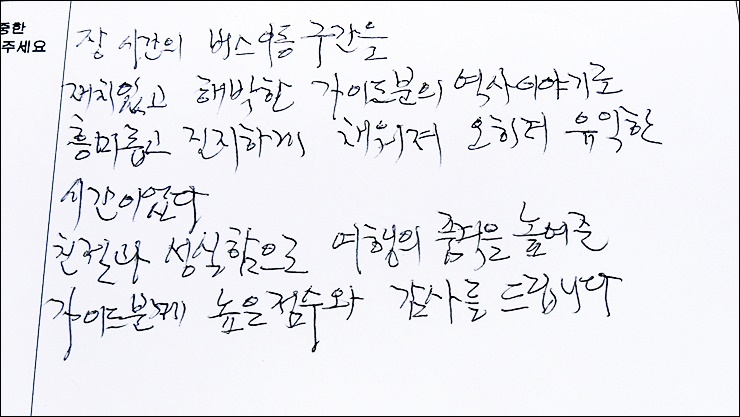 중한
주세요
장 시간의 버스이동 구간을
재치있고 해박한 가이드분의 역사이야기로
흥미롭고 진지하게 채워져 오히려 유익한
시간이었다
친절과 성실함으로 여행의 품격을 높여준
가이드분께 높은점수와 감사를 드립니다